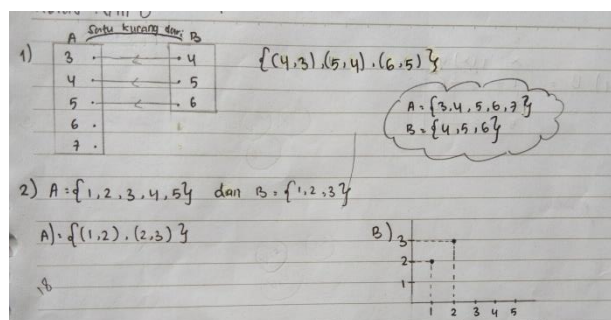 Satu kurang dari
A B
1) 3 4 {(4,3),(5,4).(6,5)}
4 5
5 6
6
7
A={3,4,5,6,7}
B={4,5,6}
2) A={1,2,3,4,5} dan B={1,2,3}
A)={(1,2).(2,3)}
B)
3
2
1
1 2 3 4 5
18